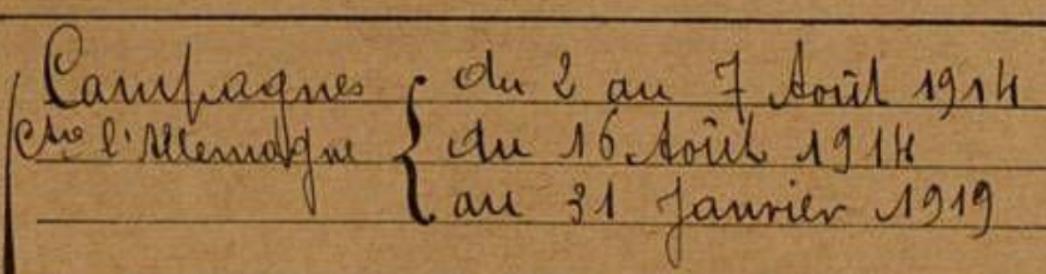 Campagnes { du 2 au 7 Août 1914
ctre l'Allemagne { du 16 Août 1914
au 31 Janvier 1919